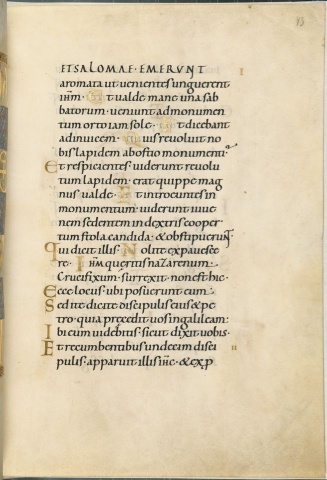 ET SALOMAE · EMERUNT
aromata ut uenientes unguerent
ihm · Et ualde mane una sab
batorum · ueniunt ad monumen
tum orto iam sole · Et dicebant
ad inuicem · Quis reuoluit no
bis lapidem ab ostio monumenti ·
Et respicientes · uiderunt reuolu
tum lapidem · erat quippe mag
nus ualde · Et introeuntes in
monumentum · uiderunt iuue
nem sedentem in dextris cooper
tum stola candida · & obstipuerunt
qui dicit illis · Nolite expauesce
re · Ihm queritis nazarenum ·
Crucifixum · surrexit · non est hic ·
ecce locus · ubi posuerunt eum ·
Sed ite dicite discipulis eius & pe
tro · quia precedit uos in galileam ·
Ibi eum uidebitis · sicut dixit uobis ·
Et recumbentibus undecim disci
pulis · apparuit illis ihc · & exp